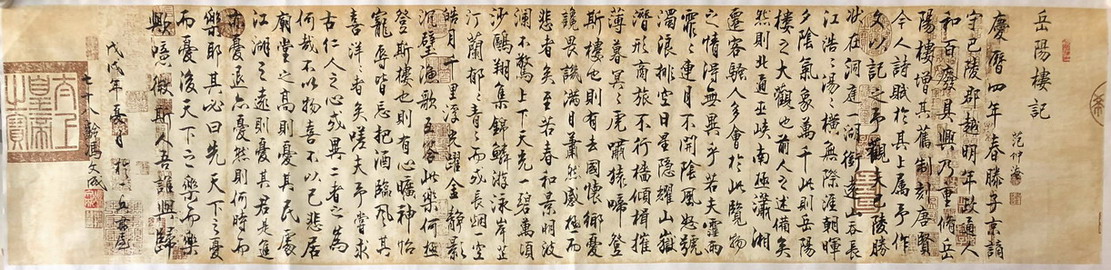 岳陽樓記
范仲淹
慶曆四年春滕子京謫
守巴陵郡越明年政通人
和百廢具興乃重修岳
陽樓增其舊制刻唐賢
今人詩賦於其上屬予作
文以記之予觀夫巴陵勝
狀在洞庭一湖銜遠山吞長
江浩々湯々橫無際涯朝暉
夕陰氣象萬千此則岳陽
樓之大觀也前人之述備矣
然則北通巫峽南極瀟湘
遷客騷人多會於此覽物
之情得無異乎若夫霪雨
霏々連月不開陰風怒號
濁浪排空日星隱耀山嶽
潛形商旅不行檣傾楫摧
薄暮冥々虎嘯猿啼登
斯樓也則有去國懷鄉憂
讒畏譏滿目蕭然感極而
悲者矣至若春和景明波
瀾不驚上下天光一碧萬頃
沙鷗翔集錦鱗游泳岸芷
汀蘭郁々青々而或長烟一空
皓月千里浮光躍金靜影
沉璧漁歌互答此樂何極
登斯樓也則有心曠神怡
寵辱皆忘把酒臨風其
喜洋洋者矣嗟夫予嘗求
古仁人之心或異二者之為
何哉不以物喜不以己悲居
廟堂之高則憂其民處
江湖之遠則憂其君是進
亦憂退亦憂然則何時而
樂耶其必曰先天下之憂
而憂後天下之樂而樂
歟噫微斯人吾誰與歸
戊戌年夏月於